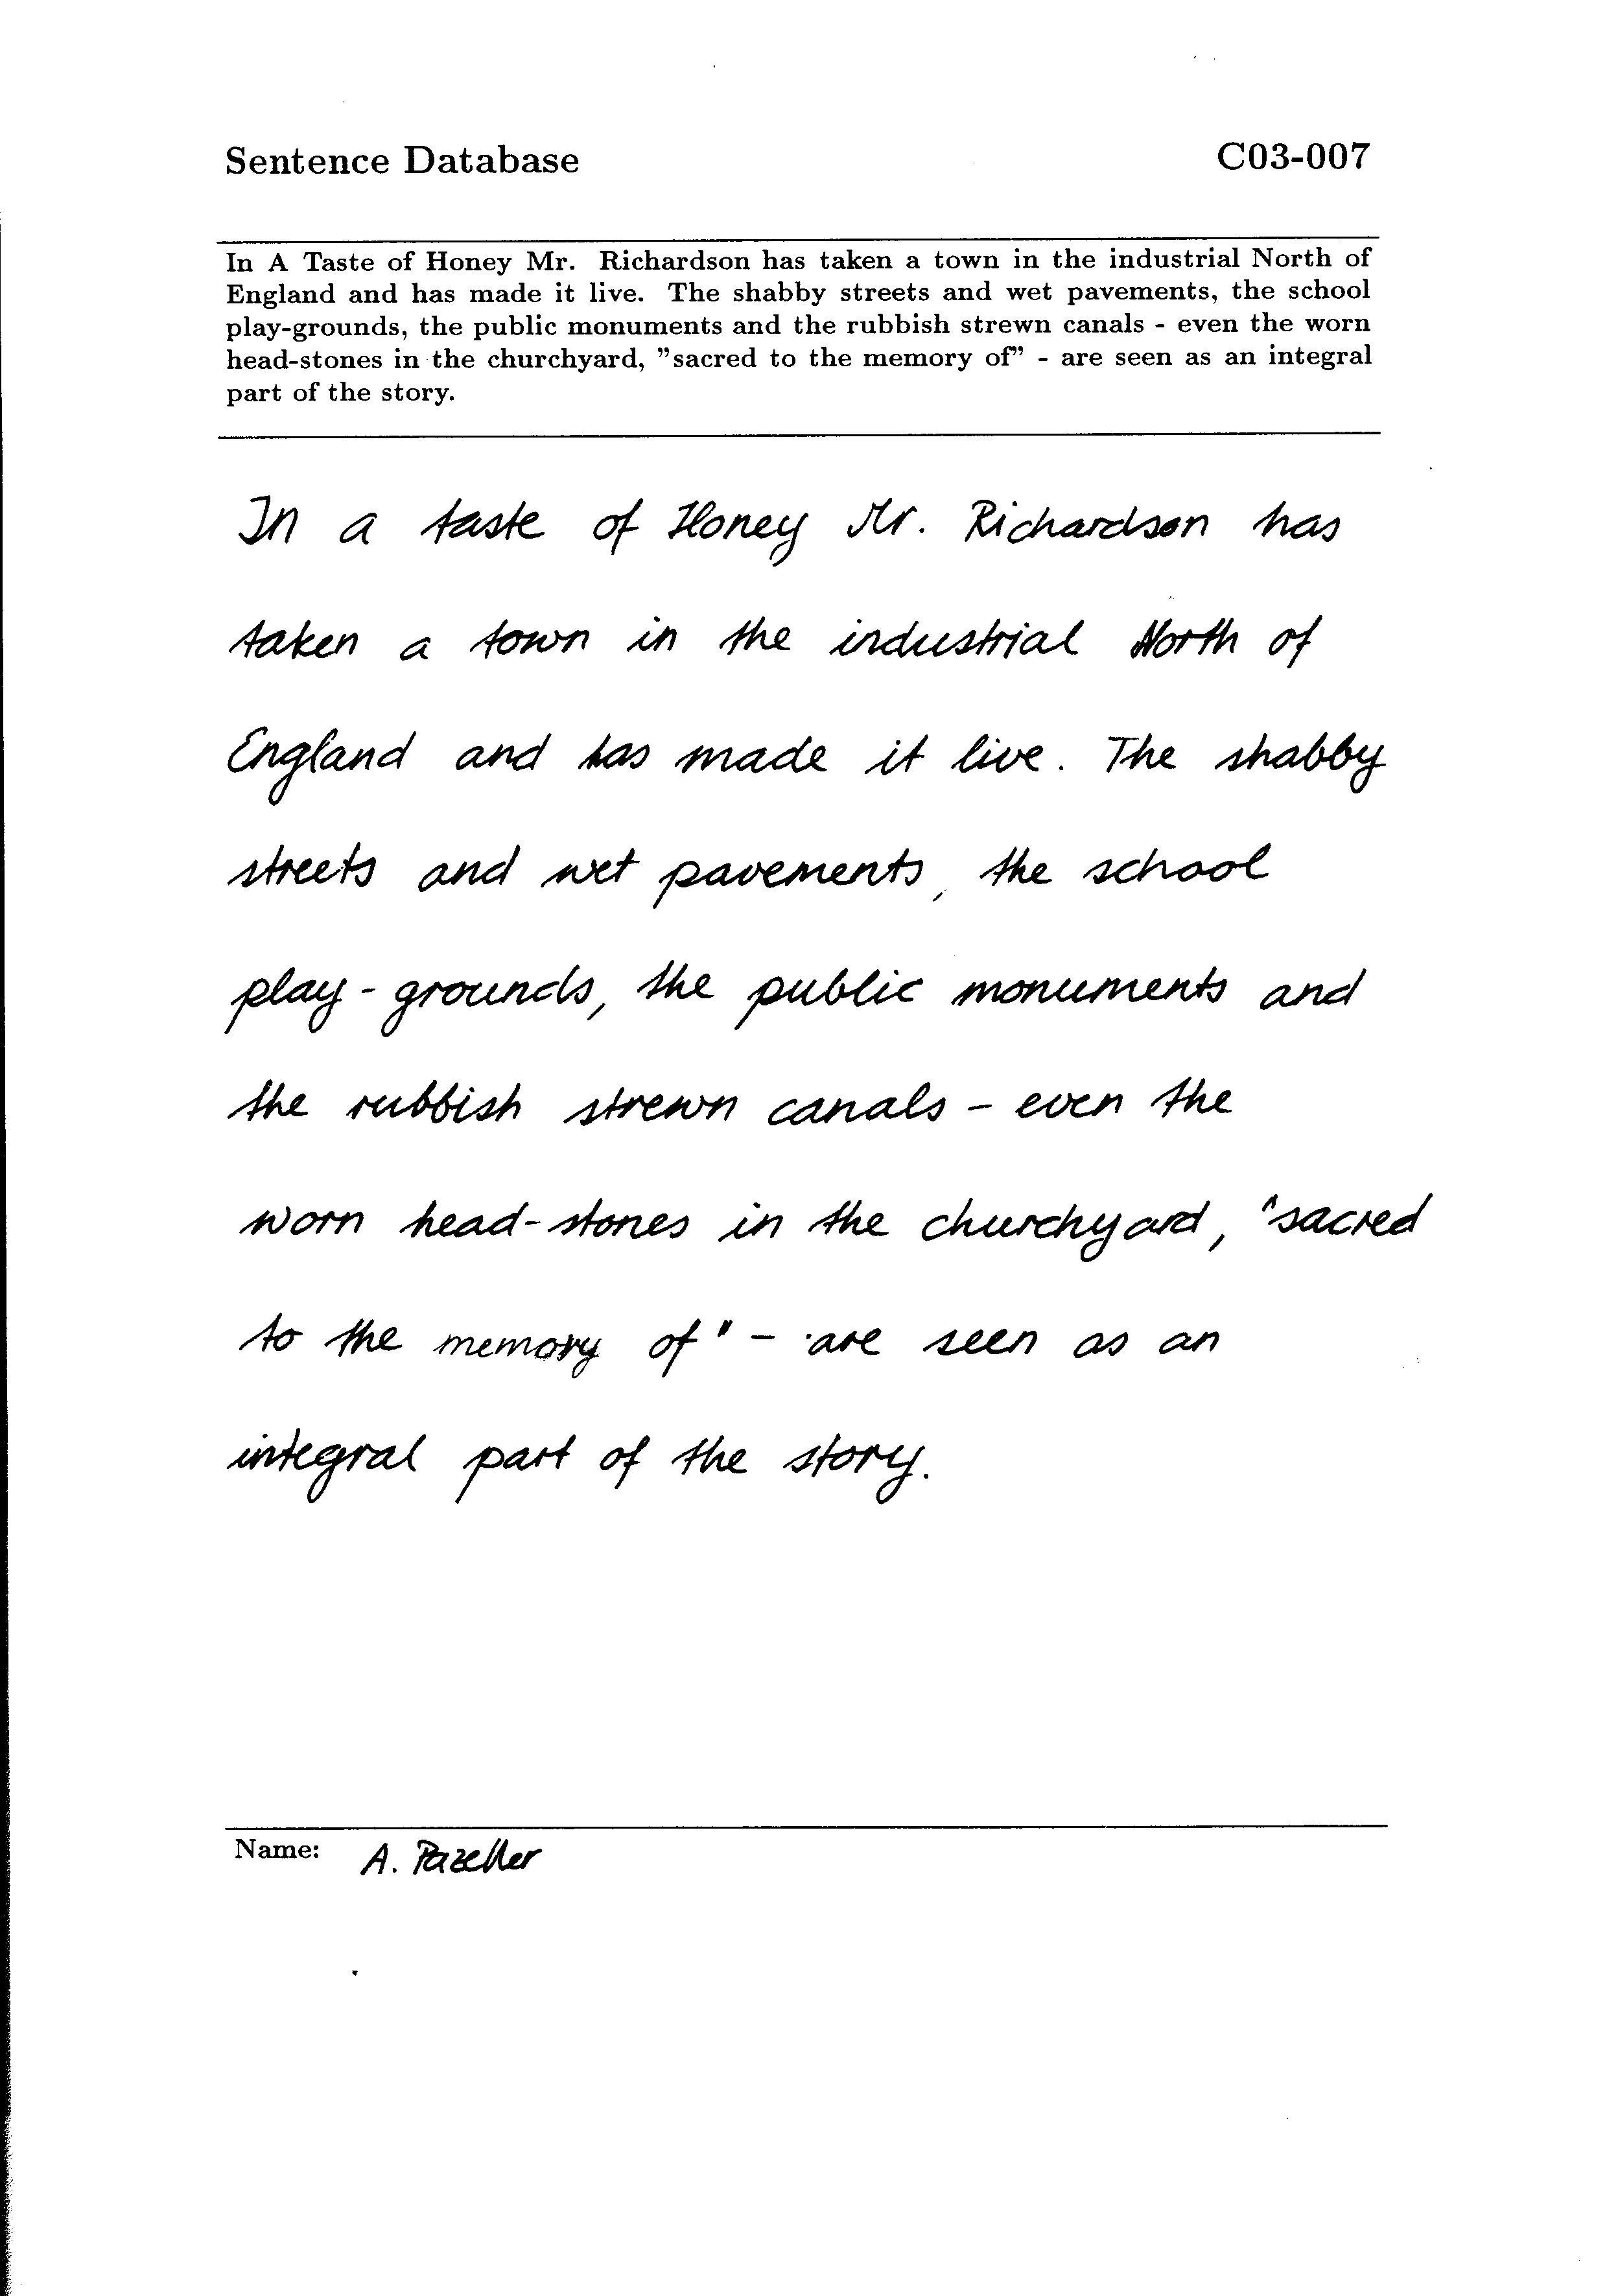 Sentence Database C03-007
In A Taste of Honey Mr. Richardson has taken a town in the industrial North of
England and has made it live. The shabby streets and wet pavements, the school
play-grounds, the public monuments and the rubbish strewn canals - even the worn
head-stones in the churchyard, "sacred to the memory of" - are seen as an integral
part of the story.
In a taste of Honey Mr. Richardson has
taken a town in the industrial North of
England and has made it live. The shabby
streets and wet pavements, the school
play-grounds, the public monuments and
the rubbish strewn canals - even the
worn head-stones in the churchyard, "sacred
to the memory of" - are seen as an
integral part of the story.
Name: A.